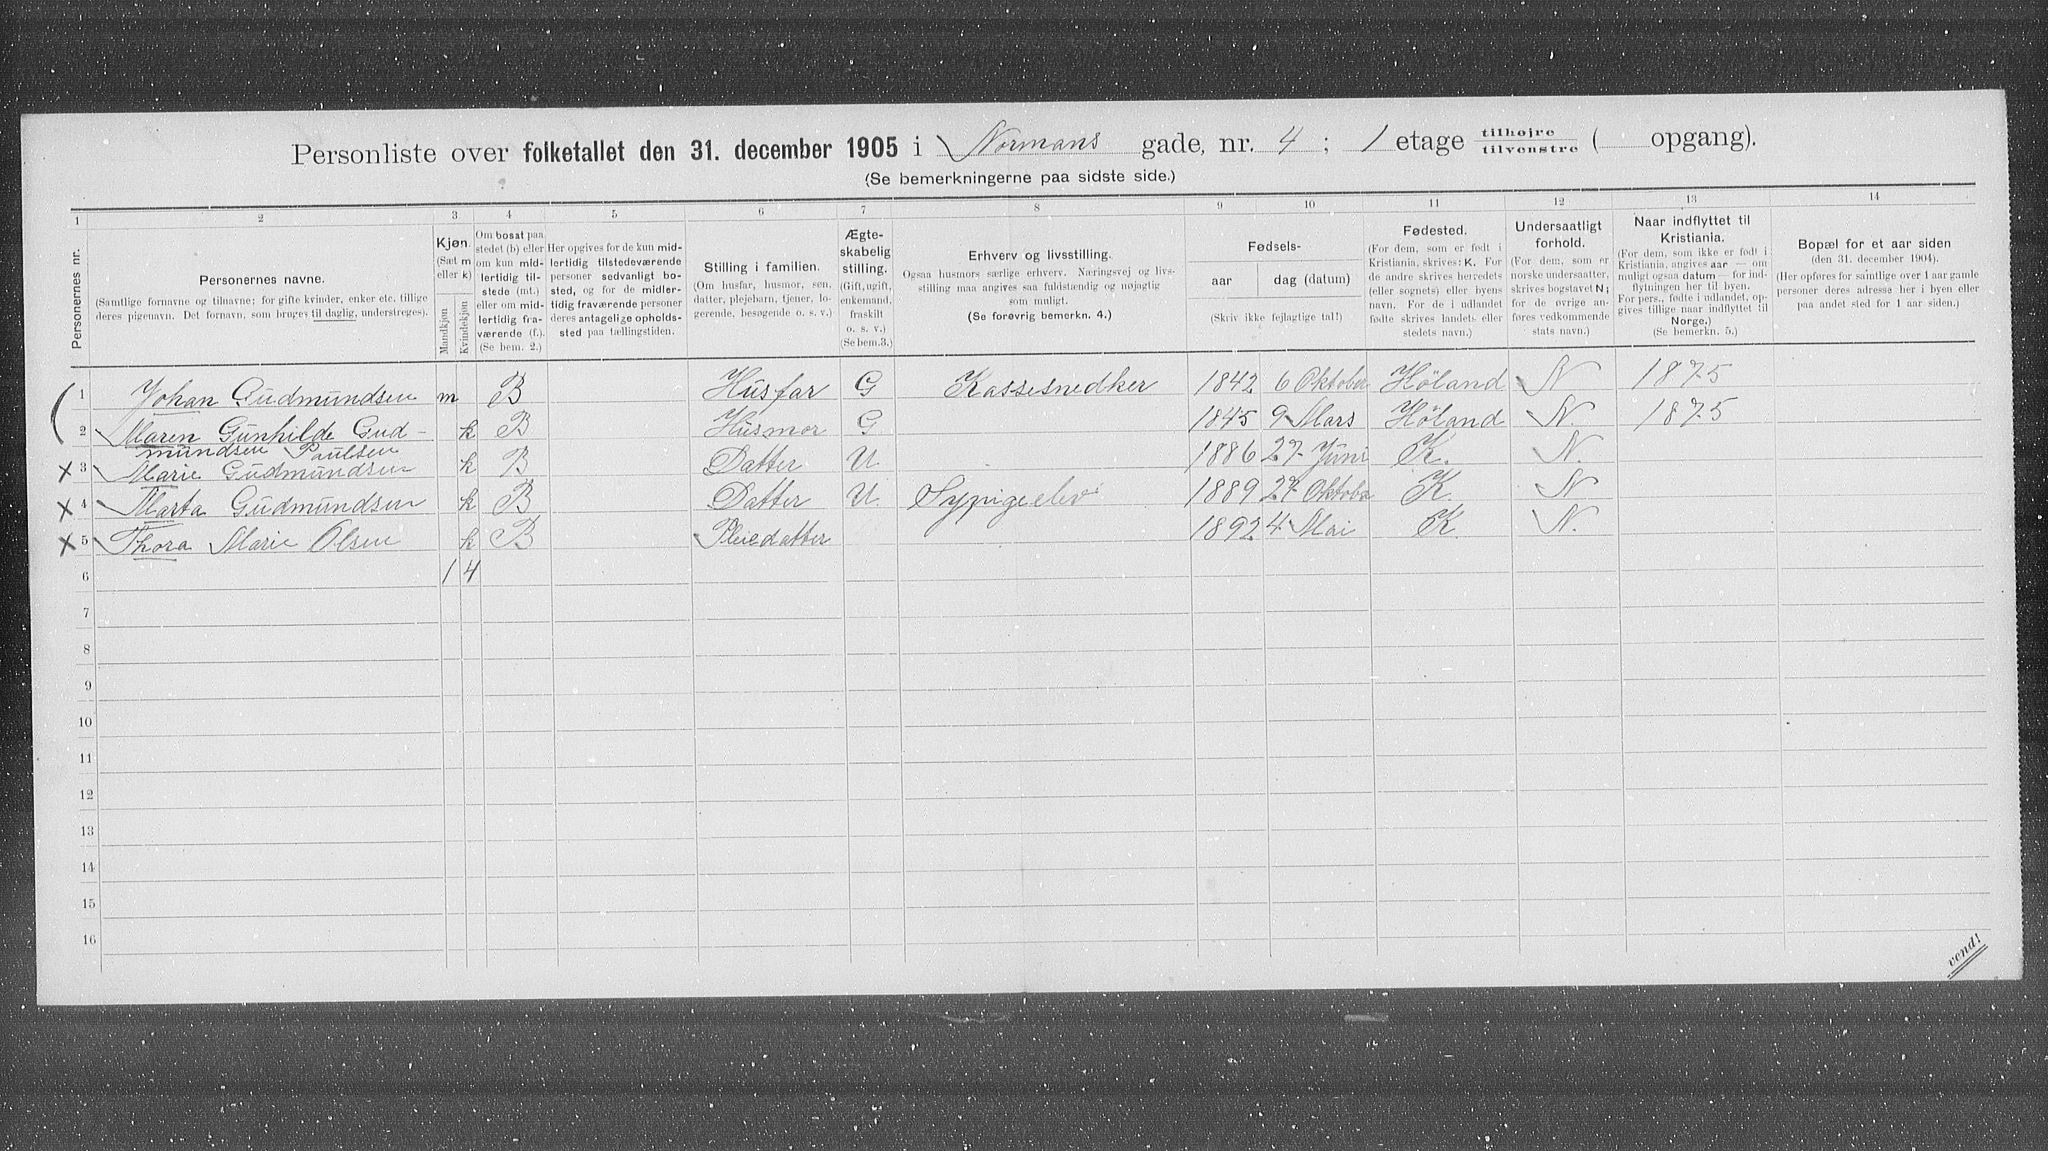 Personliste over folketallet den 31. december 1905 i Normans gade, nr. 4; 1 etage tilhøjre tilvenstre ( opgang).
(Se bemerkningerne paa sidste side.)
1 2 3 4 5 6 7 8 9 10 11 12 13 14
Personernes nr.
Personernes navne.
(Samtlige fornavne og tilnavne; for gifte kvinder, enker etc. tillige
deres pigenavn. Det fornavn, som bruges til daglig, understreges).
Kjøn.
(Sæt m
eller k)
Mandkjøn
Kvindekjøn
Om bosat paa
stedet (b) eller
om kun mid-
lertidig til-
stede (mt.)
eller om mid-
lertidig fra-
værende (f.).
(Se bem. 2.)
Her opgives for de kun mid-
lertidig tilstedeværende
personer sedvanligt bo-
sted, og for de midler-
tidig fraværende personer
deres antagelige opholds-
sted paa tællingstiden.
Stilling i familien.
(Om husfar, husmor, søn,
datter, plejebarn, tjener, lo-
gerende, besøgende o. s. v.)
Ægte-
skabelig
stilling.
(Gift, ugift,
enkemand,
fraskilt
o. s. v.)
(Se bem.3.)
Erhverv og livsstilling.
Ogsaa husmors særlige erhverv. Næringsvej og livs-
stilling maa angives saa fuldstændig og nøjagtig
som muligt.
(Se forøvrig bemerkn. 4.)
Fødsels-
aar
dag (datum)
(Skriv ikke fejlagtige tal!)
Fødested.
(For dem, som er født i
Kristiania, skrives: K. For
de andre skrives herredets
(eller sognets) eller byens
navn. For de i udlandet
fødte skrives landets eller
stedets navn.)
Undersaatligt
forhold.
(For dem, som er
norske undersaatter,
skrives bogstavet N;
for de øvrige an-
føres vedkommende
stats navn.)
Naar indflyttet til
Kristiania.
(For dem, som ikke er født i
Kristiania, angives aar — om
muligt ogsaa datum — for ind-
flytningen her til byen.
For pers., fødte i udlandet, op-
gives tillige naar indflyttet til
Norge.)
(Se bemerkn. 5.)
Bopæl for et aar siden
(den 31. december 1904).
(Her opføres for samtlige over 1 aar gamle
personer deres adresse her i byen eller
paa andet sted for 1 aar siden.)
1 Johan Gudmundsen m B Husfar G Kassesnedker 1842 6 Oktober Höland N 1875
2 Maren Gunhilde Gud- k B Husmor G 1845 9 Mars Höland N. 1875
mundsen Paulsen
3 Marie Gudmundsen k B Datter U. 1886 27 Juni K. N.
4 Marta Gudmundsen k B Datter U. Sypigeelev 1889 27 Oktober K. N
5 Thora Marie Olsen k B Pleiedatter 1892 4 Mai K. N.
6 1 4
7
8
9
10
11
12
13
14
15
16
vend!